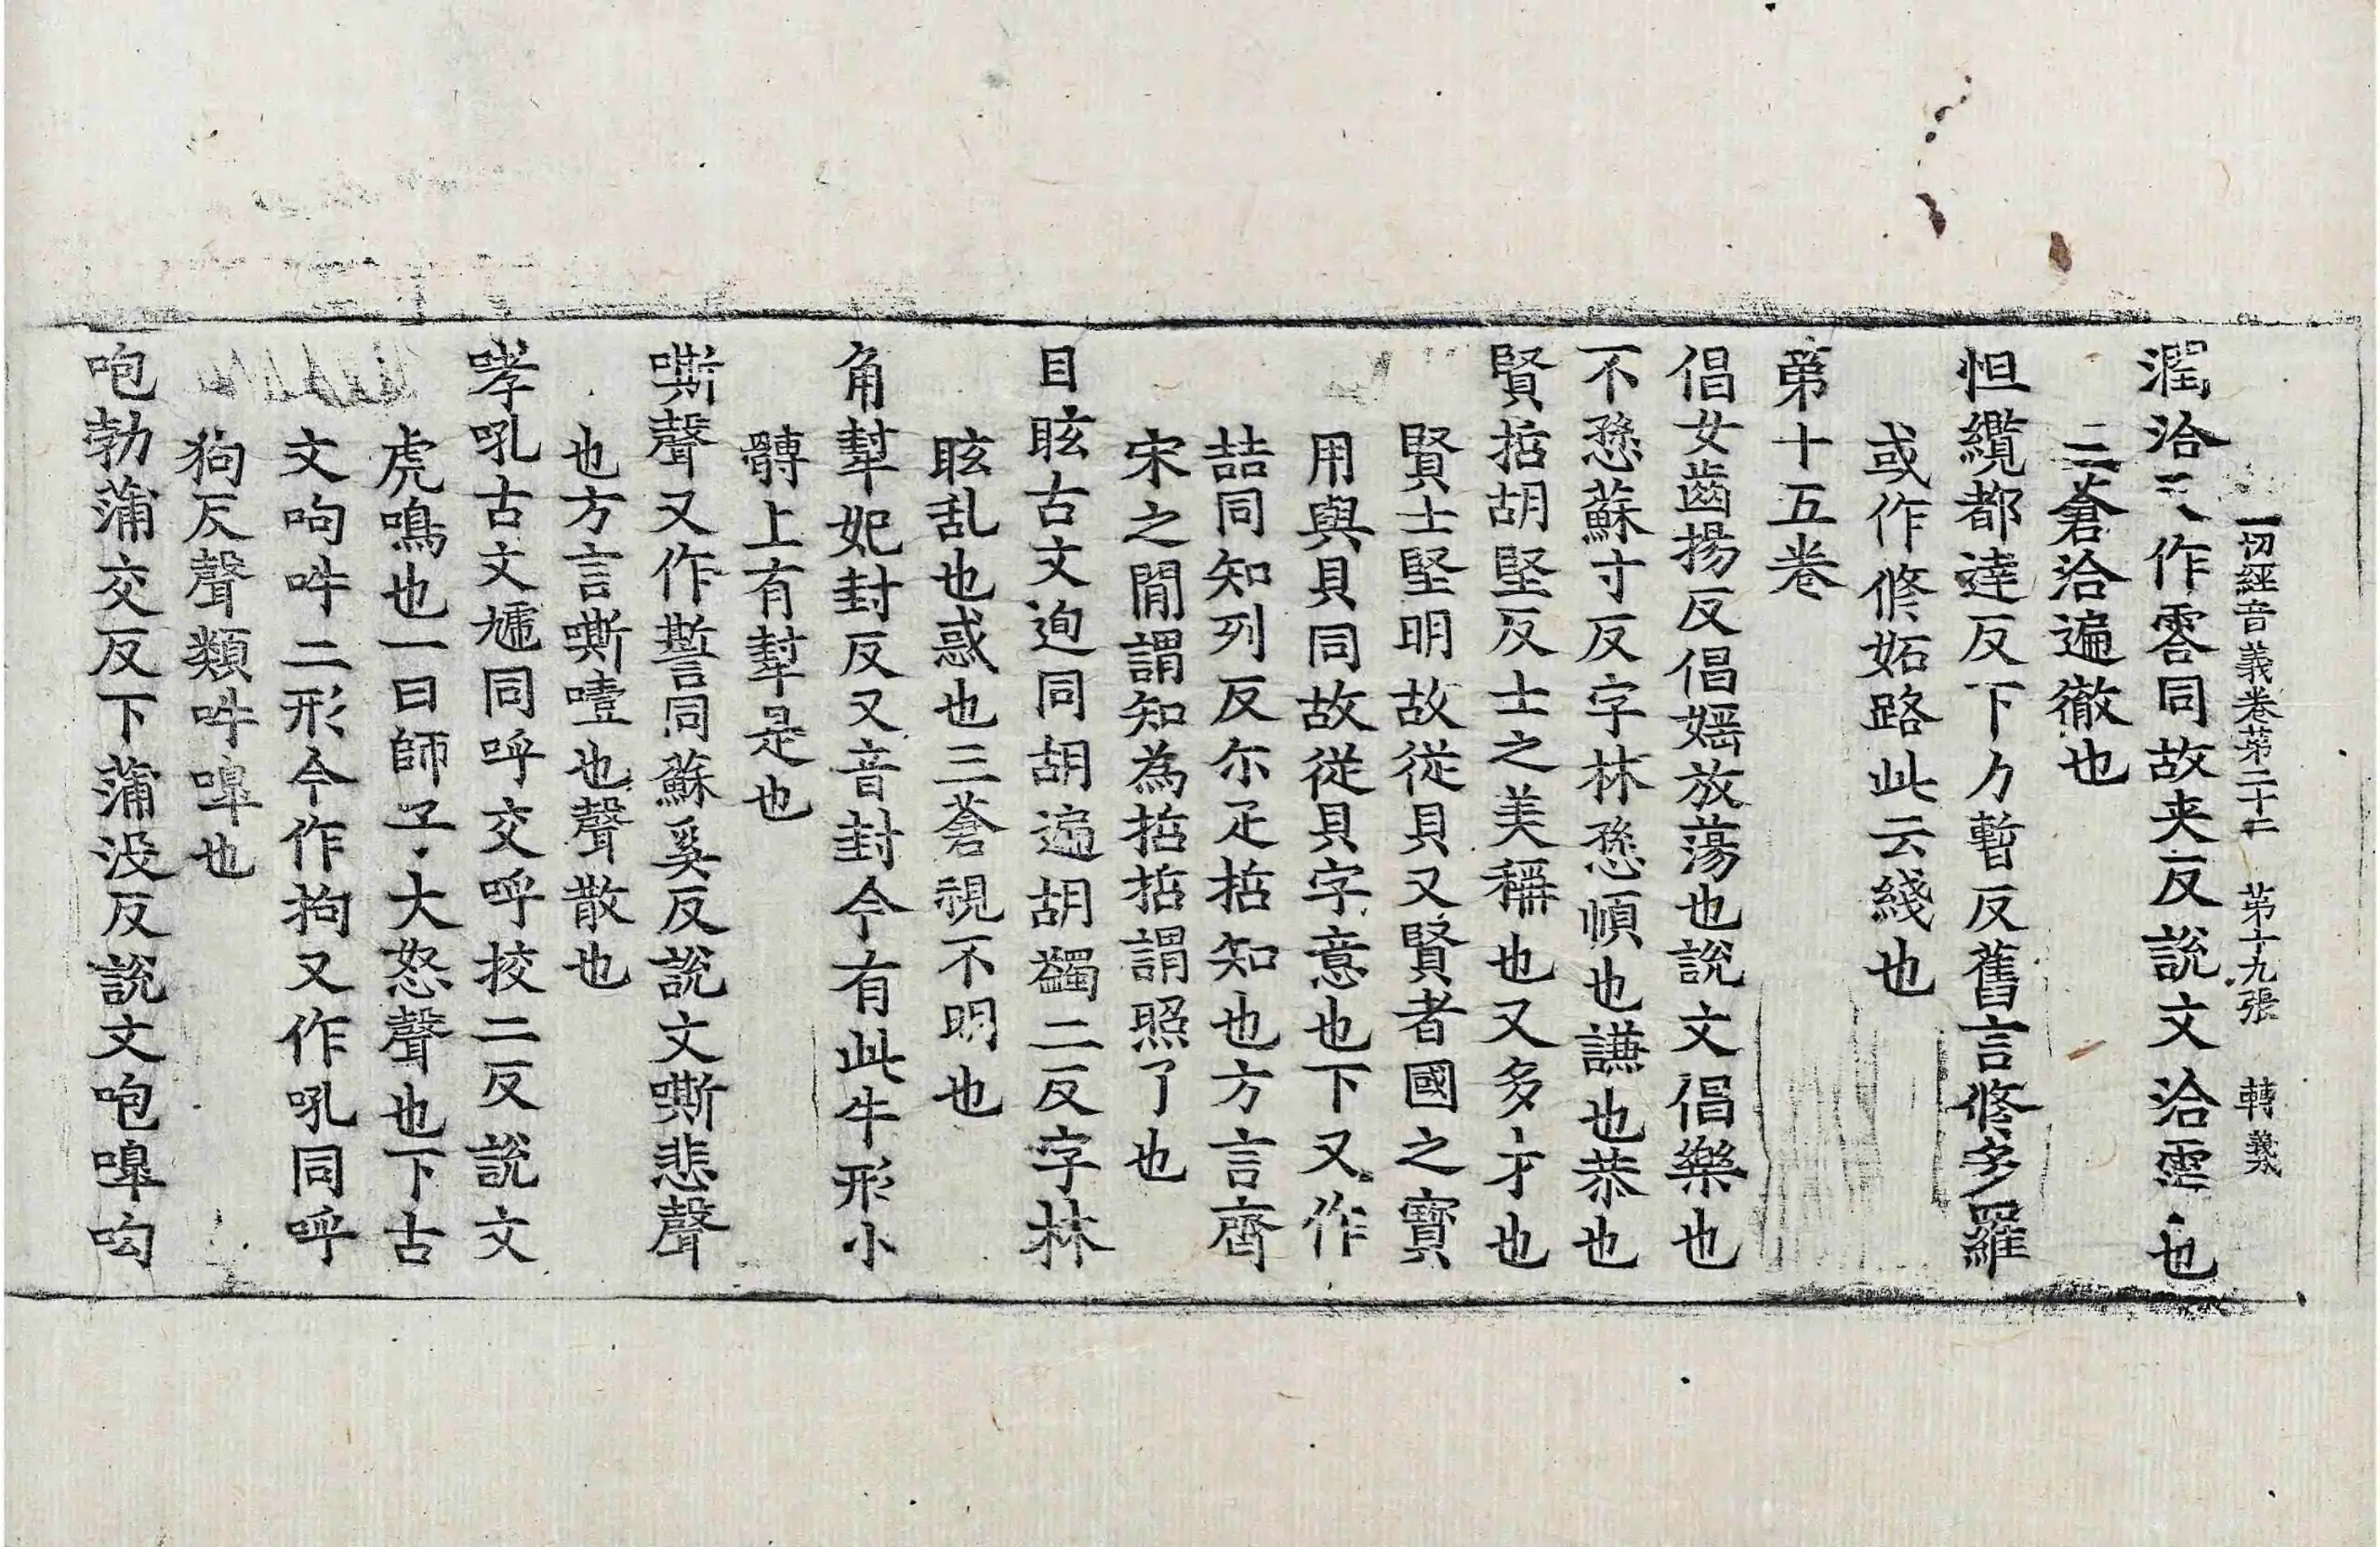 一切經音義卷第二十二　第十九張　轉義
潤洽又作霑同故夾反說文洽霑也
三蒼洽遍徹也
怛纜都達反下力暫反舊言修多羅
或作修妬路此云綫也
第十五卷
倡女齒揚反倡婬放蕩也說文倡樂也
不愻蘇寸反字林愻順也謙也恭也
賢悊胡堅反士之美稱也又多才也
賢士堅明故從貝又賢者國之寶
用與貝同故從貝字意也下又作
喆同知列反尔疋悊知也方言齊
宋之間謂知為悊悊謂照了也
目眩古文迿同胡遍胡蠲二反字林
眩乱也惑也三蒼視不明也
角犎妃封反又音封今有此牛形小
髆上有犎是也
嘶聲又作㽄同蘇奚反說文嘶悲聲
也方言嘶噎也聲散也
哮吼古文虓同呼交呼挍二反說文
虎鳴也一曰師子大怒聲也下古
文呴吽二形今作拘又作吼同呼
狗反聲類吽嘷也
咆勃蒲交反下蒲没反說文咆嘷呴